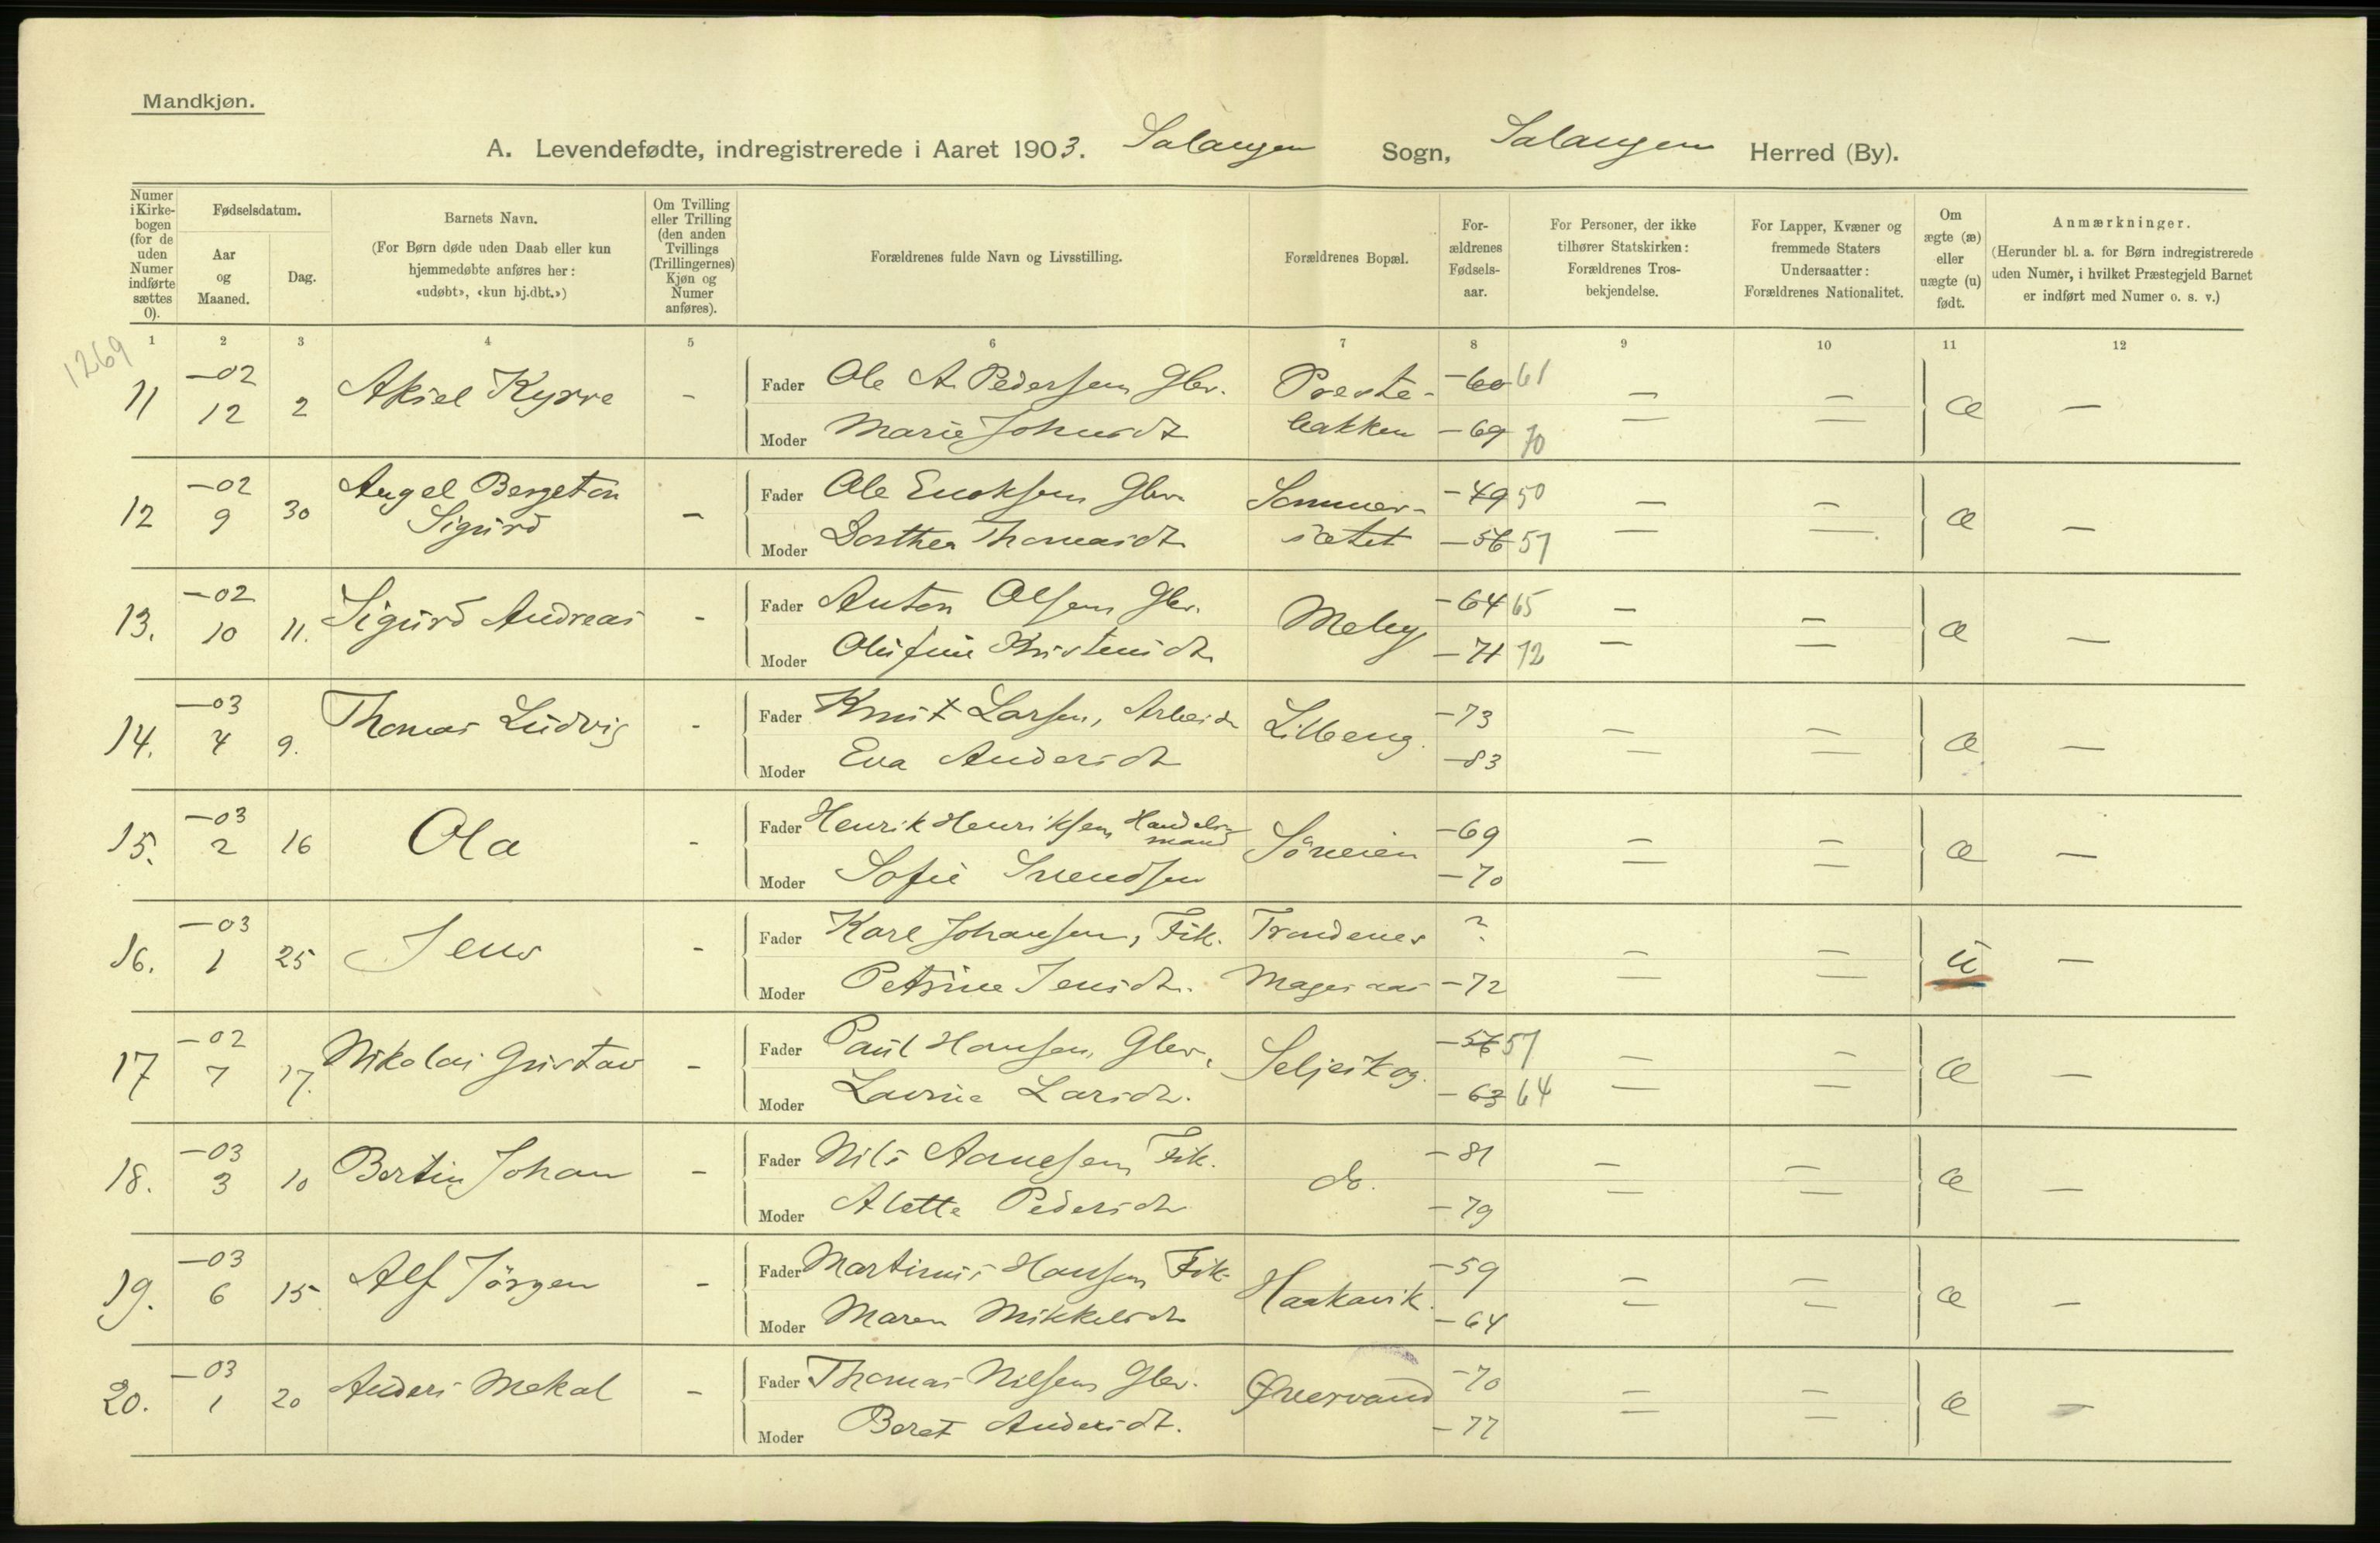 Mandkjøn.
A. Levendefødte, indregistrerede i Aaret 1903. Salangen Sogn, Salangen Herred (By).
Numer i Kirkebogen (for de uden Numer indførte sættes 0).
Fødselsdatum.
Aar og Maaned.
Dag.
Barnets Navn.
(For Børn døde uden Daab eller kun hjemmedøbte anføres her: «udøbt», «kun hj.dbt.»)
Om Tvilling eller Trilling (den anden Tvillings (Trillingernes) Kjøn og Numer anføres).
Forældrenes fulde Navn og Livsstilling.
Forældrenes Bopæl.
Forældrenes Fødselsaar.
For Personer, der ikke tilhører Statskirken: Forældrenes Trosbekjendelse.
For Lapper, Kvæner og fremmede Staters Undersaatter: Forældrenes Nationalitet.
Om ægte (æ) eller uægte (u) født.
Anmærkninger.
(Herunder bl. a. for Børn indregistrerede uden Numer, i hvilket Præstegjeld Barnet er indført med Numer o. s. v.)
1 2 3 4 5 6 7 8 9 10 11 12
1269
11 -02 12 2 Aksel Kyrre - Fader Ole A. Pedersen Gbr. Preste- -60 61 — — æ —
Moder Marie Johnsdt bakken -69 70 — —
12 -02 9 30 Angel Bergeton Sigurd - Fader Ole Enoksen Gbr. Sommer- -49 50 — — æ —
Moder Dorthea Thomasdt sætet -56 57 — —
13. -02 10 11. Sigurd Andreas - Fader Anton Olsen Gbr. Meby -64 65 — — æ —
Moder Olufine Kristensdt. -71 72 — —
14. -03 4 9. Thomas Ludvig - Fader Knut Larsen, Arbeid Lilleng. -73 — — æ —
Moder Eva Andersdt -83 — —
15. -03 2 16 Ola - Fader Henrik Henriksen Handelsmand Söveien -69 — — æ —
Moder Sofie Svendsen -70 — —
16. -03 1 25 Jens - Fader Karl Johansen, Fik. Trondenes ? — — u —
Moder Petrine Jensdt. Magesaas -72 — —
17 -02 7 17. Nikolai Gustav - Fader Paul Hansen, Gbr. Seljeskog. -56 57 — — æ —
Moder Lavine Larsdt. -63 64 — —
18. -03 3 10 Bertin Johan - Fader Nils Arnesen Fik. do. -81 — — æ —
Moder Alette Pedersdt -79 — —
19. -03 6 15 Alf Jörgen - Fader Martinus Hansen Fik. Haakavik. -59 — — æ —
Moder Maren Mikkelsdt -64 — —
20. -03 1 20 Anders Mekal - Fader Thomas Nilsen Gbr. Øvervand -70 — — æ —
Moder Beret Andersdt. -77 — —